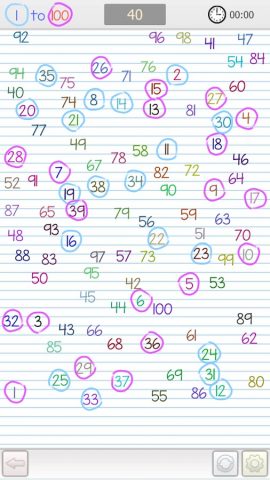 1 to 100 40 00:00
92 96 98 41 47
54 84
94 35 75 26 71 76 2
40 15 27 60
20 74 8 14 13 81
77 21 30 4
49 58 11 18
28 67 78 46
7 82 72 64
52 91 19 38 34 90 9 17
87 65 39 79 56 59 63
48 93 16 22 51 70
88 83 97 57 73 23 99 10
50 95 42 5 53
45 44 6 100
32 3 43 66 89
85 68 36 61 62
24
29 31
1 25 37 69 80
33 55 86 12